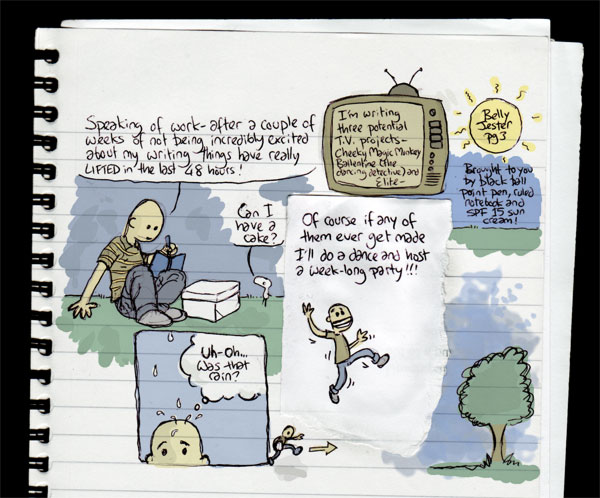 Speaking of work- after a couple of
weeks of not being incredibly excited
about my writing things have really
LIFTED in the last 48 hours!
I'm writing
three potential
T.V. projects-
Cheeky Magic Monkey
Ballentine (the
dancing detective) and
Elite-
Belly
Jester
pg 3
Brought to you
by black ball
point pen, ruled
notebook and
SPF 15 sun
cream!
Can I
have a
cake?
Of course if any of
them ever get made
I'll do a dance and host
a week-long party!!!
Uh-Oh...
Was that
rain?